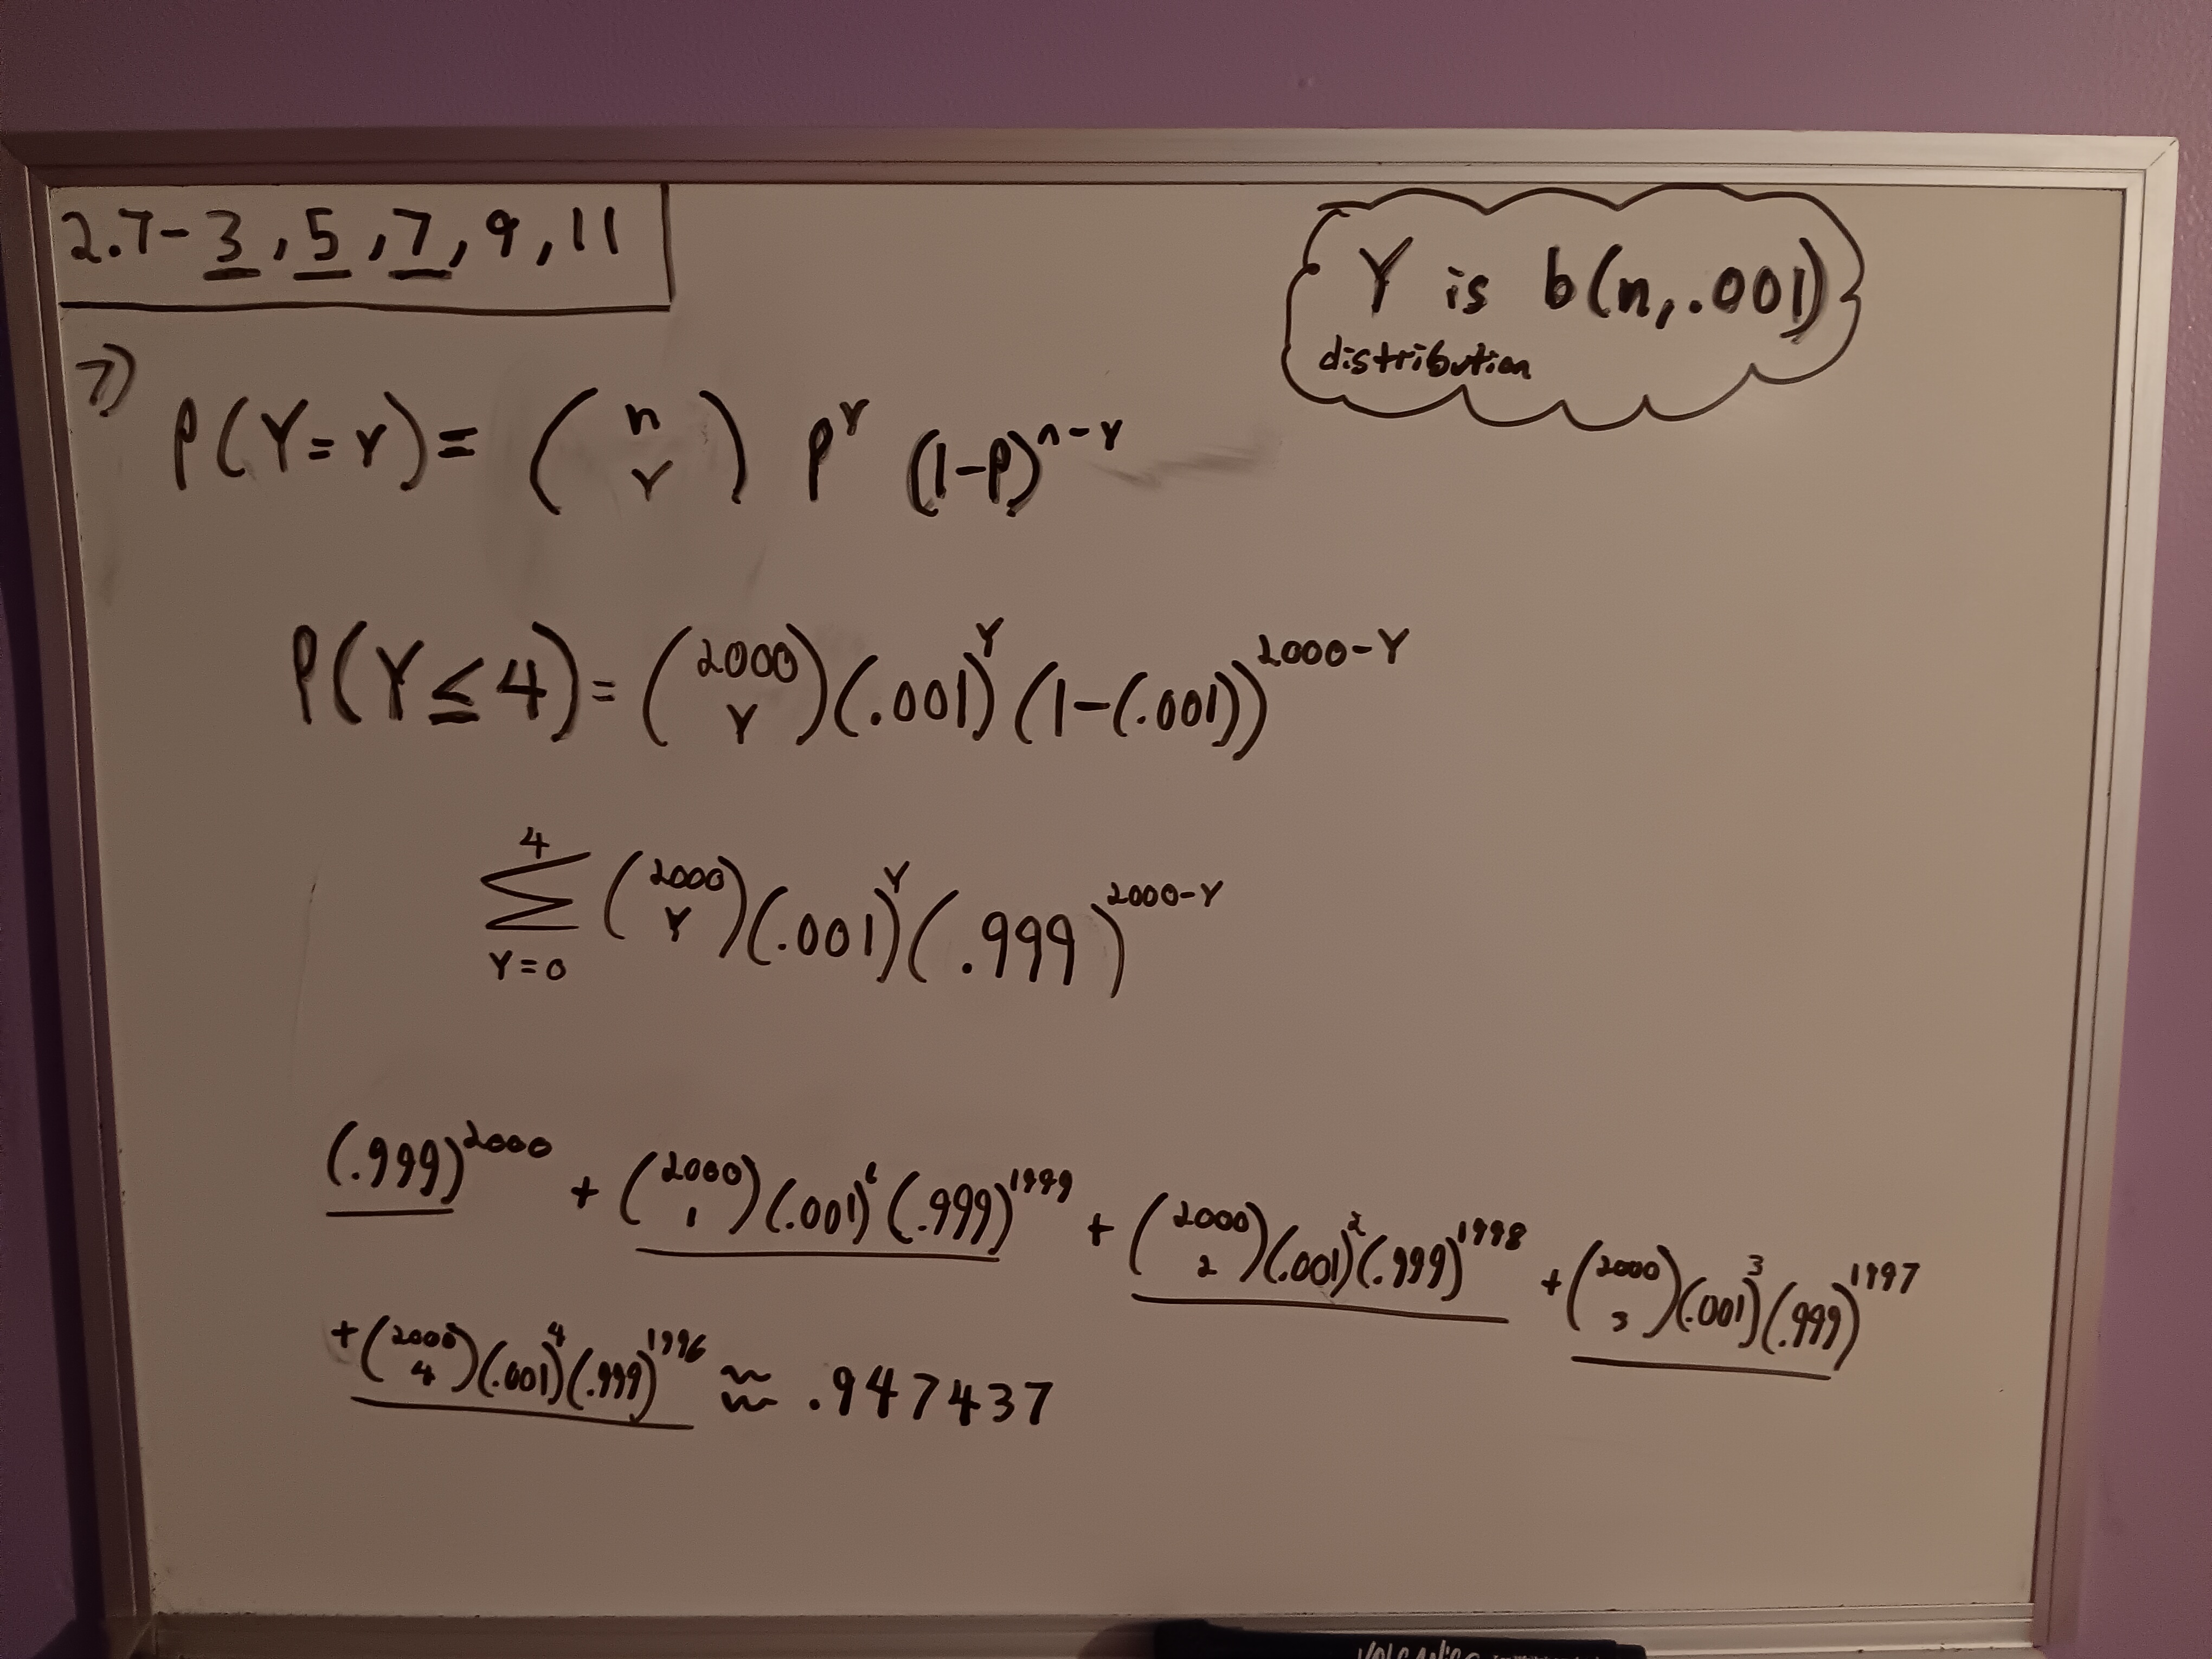 2.7-3, 5, 7, 9, 11
Y is b(n, .001)
distribution
7)
P(Y=Y) = (n Y) P^Y (1-P)^n-Y
P(Y≤4) = (2000 Y)(.001)^Y (1-(.001))^2000-Y
4
Σ (2000 Y)(.001)^Y (.999)^2000-Y
Y=0
(.999)^2000 + (2000 1)(.001)^1 (.999)^1999 + (2000 2)(.001)^2 (.999)^1998 + (2000 3)(.001)^3 (.999)^1997
+ (2000 4)(.001)^4 (.999)^1996 ≈ .947437